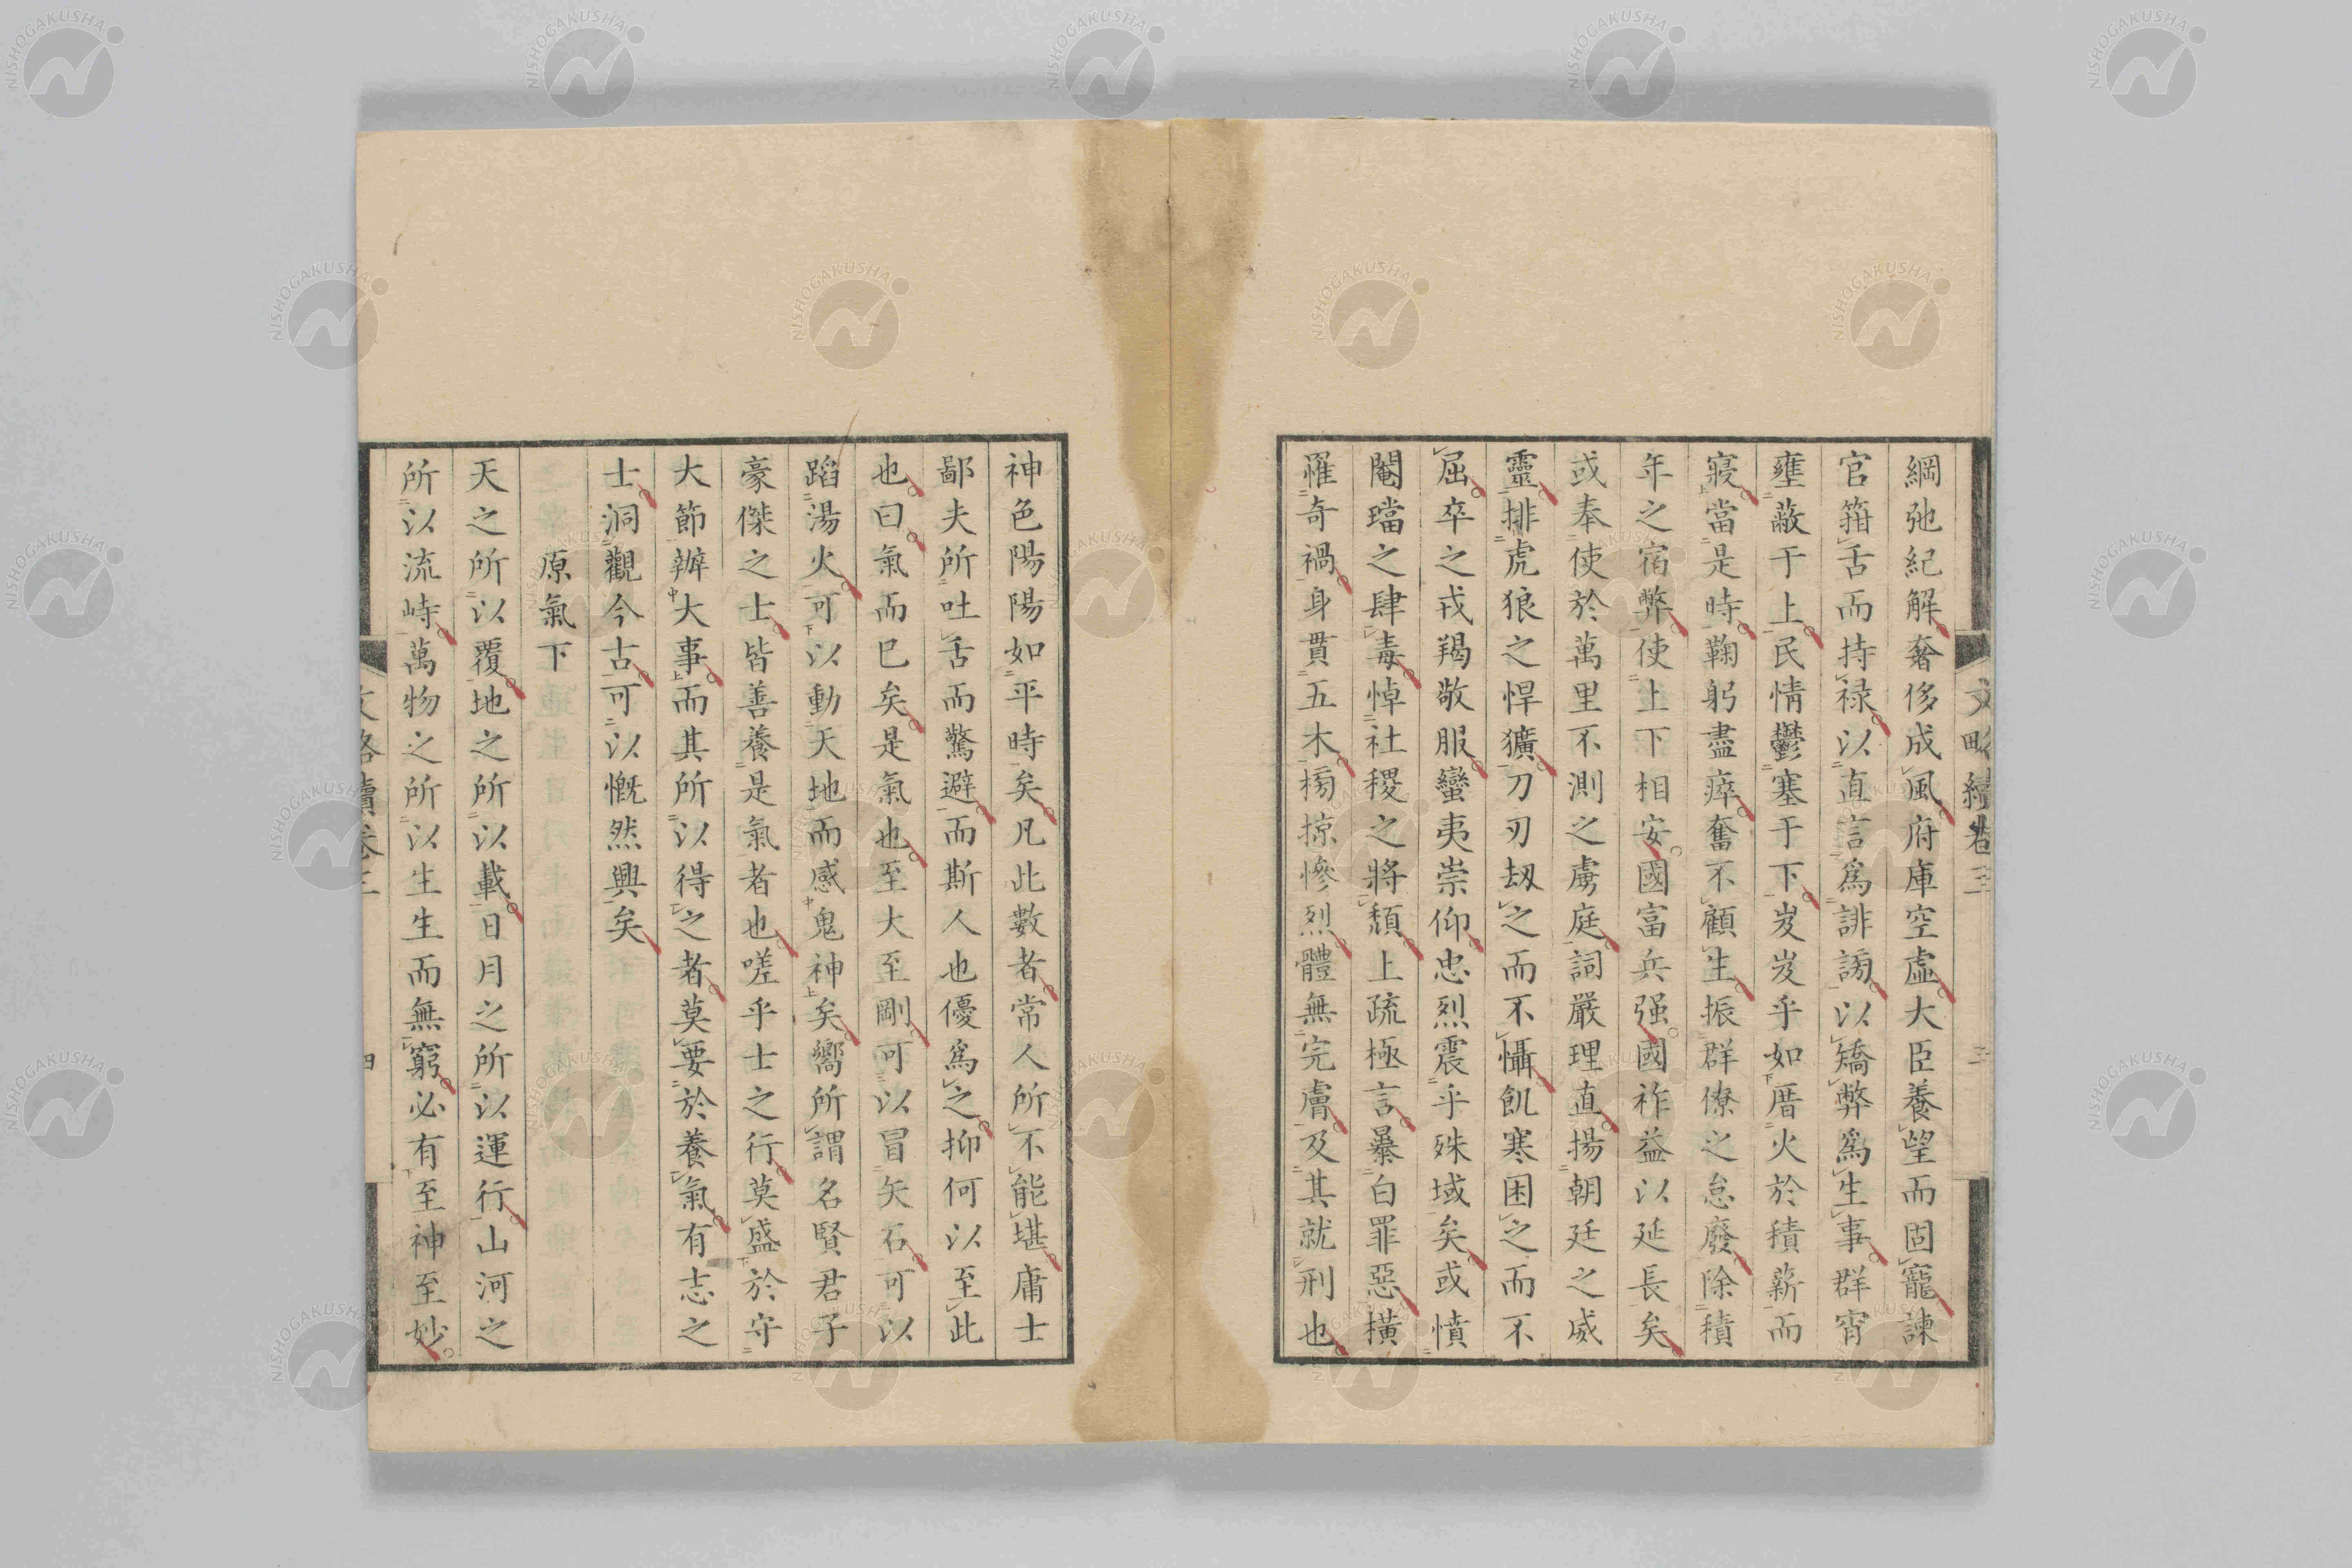 綱弛紀解奢侈成風府庫空虛大臣養望而固寵諫
官箝舌而持祿以直言爲誹謗以矯弊爲生事群宵
壅蔽于上民情鬱塞于下岌岌乎如厝火於積薪而
寢當是時鞠躬盡瘁奮不顧生振群僚之怠廢除積
年之宿弊使上下相安國富兵强國祚益以延長矣
或奉使於萬里不測之虜庭詞嚴理直揚朝廷之威
靈排虎狼之悍獷刀刃刼之而不懾飢寒困之而不
屈卒之戎羯敬服蠻夷崇仰忠烈震乎殊域矣或憤
閹璫之肆毒悼社稷之將頹上疏極言暴白罪惡橫
罹奇禍身貫五木榜掠慘烈體無完膚及其就刑也
文略續卷三
三
神色陽陽如平時矣凡此數者常人所不能堪庸士
鄙夫所吐舌而驚避而斯人也優爲之抑何以至此
也曰氣而已矣是氣也至大至剛可以冒矢石可以
蹈湯火可以動天地而感鬼神矣嚮所謂名賢君子
豪傑之士皆善養是氣者也嗟乎士之行莫盛於守
大節辦大事而其所以得之者莫要於養氣有志之
士洞觀今古可以慨然興矣
原氣下
天之所以覆地之所以載日月之所以運行山河之
所以流峙萬物之所以生生而無窮必有至神至妙
文略續卷三
四
NISHOGAKUSHA